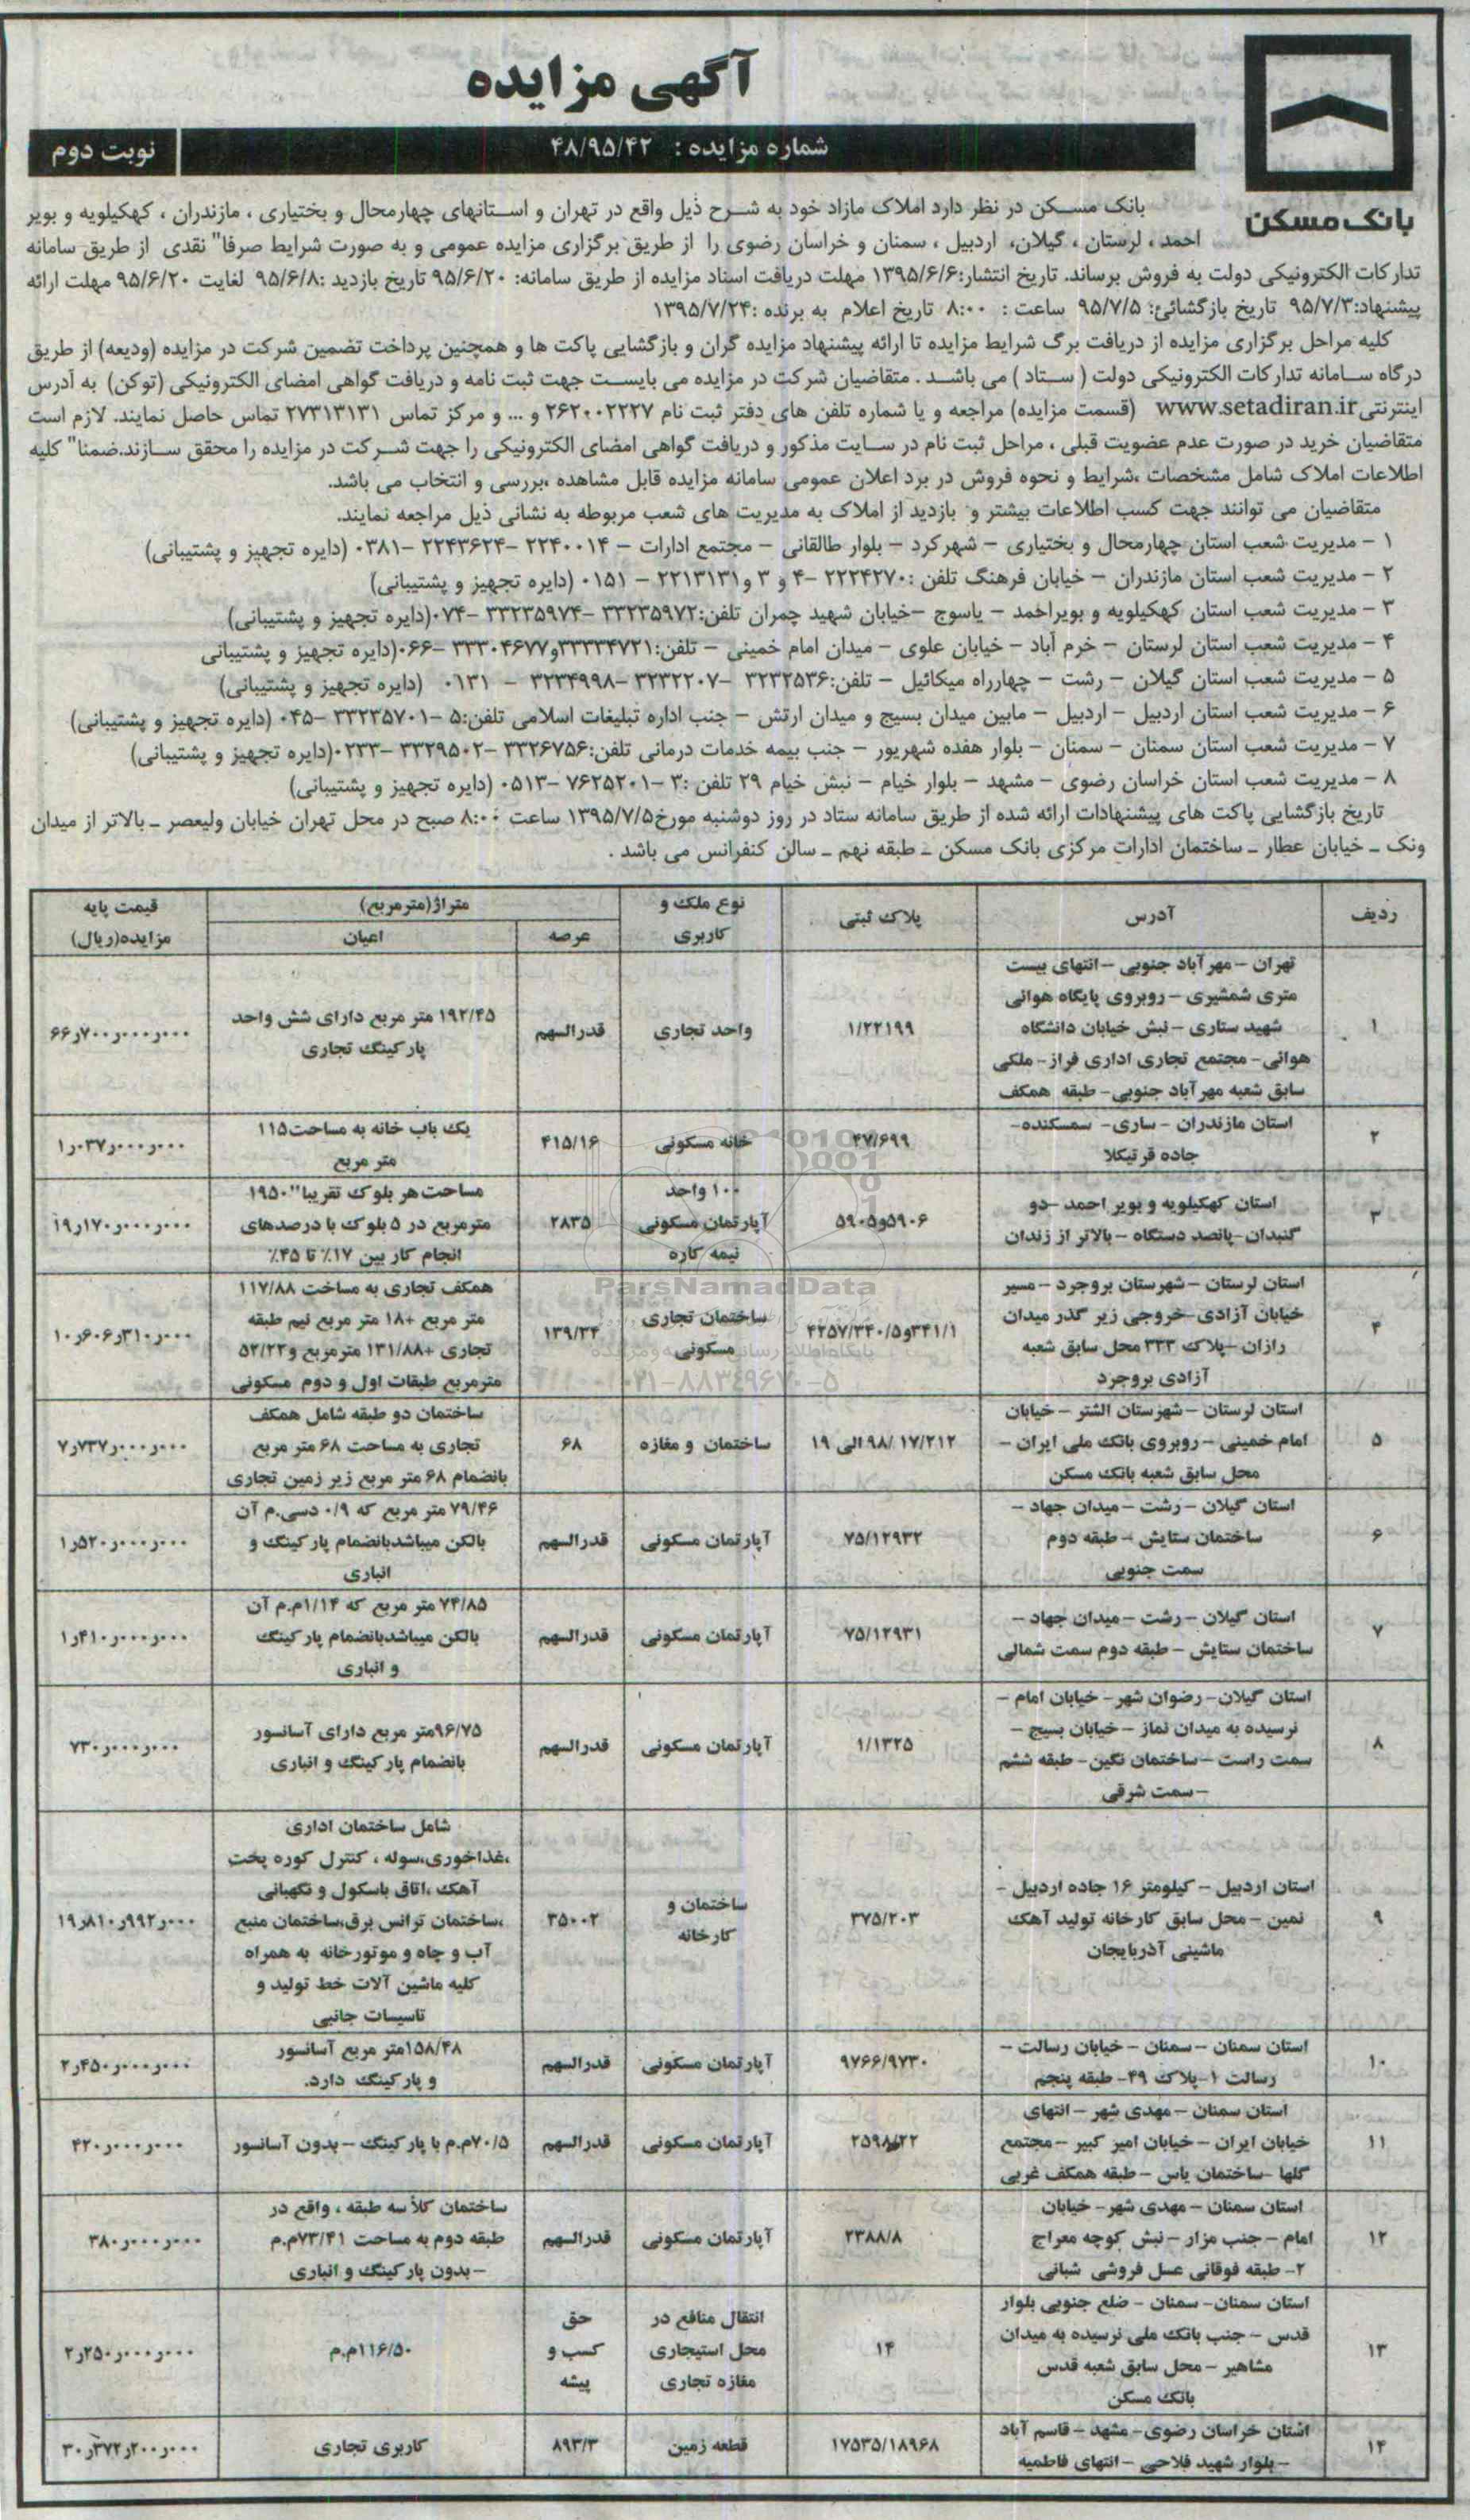 آگهی مزایده
شماره مزایده : ۴۸/۹۵/۴۲
نوبت دوم
بانک مسکن
بانک مسکن در نظر دارد املاک مازاد خود به شرح ذیل واقع در تهران و استانهای چهارمحال و بختیاری ، مازندران ، کهکیلویه و بویر
احمد ، لرستان ، گیلان، اردبیل ، سمنان و خراسان رضوی را از طریق برگزاری مزایده عمومی و به صورت شرایط صرفا" نقدی از طریق سامانه
تدارکات الکترونیکی دولت به فروش برساند. تاریخ انتشار:۱۳۹۵/۶/۶ مهلت دریافت اسناد مزایده از طریق سامانه: ۹۵/۶/۲۰ تاریخ بازدید :۹۵/۶/۸ لغایت ۹۵/۶/۲۰ مهلت ارائه
پیشنهاد:۹۵/۷/۳ تاریخ بازگشائی: ۹۵/۷/۵ ساعت : ۸:۰۰ تاریخ اعلام به برنده :۱۳۹۵/۷/۲۴
کلیه مراحل برگزاری مزایده از دریافت برگ شرایط مزایده تا ارائه پیشنهاد مزایده گران و بازگشایی پاکت ها و همچنین پرداخت تضمین شرکت در مزایده (ودیعه) از طریق
درگاه سامانه تدارکات الکترونیکی دولت ( ستاد ) می باشد . متقاضیان شرکت در مزایده می بایست جهت ثبت نامه و دریافت گواهی امضای الکترونیکی (توکن) به آدرس
اینترنتی www.setadiran.ir (قسمت مزایده) مراجعه و یا شماره تلفن های دفتر ثبت نام ۲۶۲۰۰۲۲۲۷ و ... و مرکز تماس ۲۷۳۱۳۱۳۱ تماس حاصل نمایند. لازم است
متقاضیان خرید در صورت عدم عضویت قبلی ، مراحل ثبت نام در سایت مذکور و دریافت گواهی امضای الکترونیکی را جهت شرکت در مزایده را محقق سازند.ضمنا" کلیه
اطلاعات املاک شامل مشخصات ،شرایط و نحوه فروش در برد اعلان عمومی سامانه مزایده قابل مشاهده ،بررسی و انتخاب می باشد.
متقاضیان می توانند جهت کسب اطلاعات بیشتر و بازدید از املاک به مدیریت های شعب مربوطه به نشانی ذیل مراجعه نمایند.
۱ – مدیریت شعب استان چهارمحال و بختیاری – شهرکرد – بلوار طالقانی – مجتمع ادارات – ۲۲۴۰۰۱۴ –۲۲۴۳۶۲۴ –۰۳۸۱ (دایره تجهیز و پشتیبانی)
۲ – مدیریت شعب استان مازندران – خیابان فرهنگ تلفن :۲۲۲۴۲۷۰ –۴ و ۳ و۲۲۱۳۱۳۱ – ۰۱۵۱ (دایره تجهیز و پشتیبانی)
۳ – مدیریت شعب استان کهکیلویه و بویراحمد – یاسوج –خیابان شهید چمران تلفن:۳۳۲۳۵۹۷۲ –۳۳۲۳۵۹۷۴ –۰۷۴(دایره تجهیز و پشتیبانی)
۴ – مدیریت شعب استان لرستان – خرم آباد – خیابان علوی – میدان امام خمینی – تلفن:۳۳۳۳۴۷۲۱و۳۳۳۰۴۶۷۷ –۰۶۶(دایره تجهیز و پشتیبانی
۵ – مدیریت شعب استان گیلان – رشت – چهارراه میکائیل – تلفن:۳۲۳۲۵۳۶ –۳۲۳۲۲۰۷ –۳۲۳۴۹۹۸ – ۰۱۳۱ (دایره تجهیز و پشتیبانی)
۶ – مدیریت شعب استان اردبیل – اردبیل – مابین میدان بسیج و میدان ارتش – جنب اداره تبلیغات اسلامی تلفن:۵ –۳۳۲۳۵۷۰۱ –۰۴۵ (دایره تجهیز و پشتیبانی)
۷ – مدیریت شعب استان سمنان – سمنان – بلوار هفده شهریور – جنب بیمه خدمات درمانی تلفن:۳۳۲۶۷۵۶ –۳۳۲۹۵۰۲ –۰۲۳۳(دایره تجهیز و پشتیبانی)
۸ – مدیریت شعب استان خراسان رضوی – مشهد – بلوار خیام – نبش خیام ۲۹ تلفن :۳ –۷۶۲۵۲۰۱ –۰۵۱۳ (دایره تجهیز و پشتیبانی)
تاریخ بازگشایی پاکت های پیشنهادات ارائه شده از طریق سامانه ستاد در روز دوشنبه مورخ۱۳۹۵/۷/۵ ساعت ۸:۰۰ صبح در محل تهران خیابان ولیعصر ـ بالاتر از میدان
ونک ـ خیابان عطار ـ ساختمان ادارات مرکزی بانک مسکن ـ طبقه نهم ـ سالن کنفرانس می باشد .
ردیف
آدرس
پلاک ثبتی
نوع ملک و
کاربری
متراژ(مترمربع)
عرصه
اعیان
قیمت پایه
مزایده(ریال)
۱
تهران – مهرآباد جنوبی – انتهای بیست
متری شمشیری – روبروی پایگاه هوانی
شهید ستاری – نبش خیابان دانشگاه
هوانی– مجتمع تجاری اداری فراز– ملکی
سابق شعبه مهرآباد جنوبی– طبقه همکف
۱/۲۲۱۹۹
واحد تجاری
قدرالسهم
۱۹۲/۴۵ متر مربع دارای شش واحد
پارکینگ تجاری
۶۶ر۷۰۰ر۰۰۰ر۰۰۰
۲
استان مازندران – ساری– سمسکنده–
جاده قرتیکلا
۴۷/۶۹۹
خانه مسکونی
۴۱۵/۱۶
یک باب خانه به مساحت۱۱۵
متر مربع
۱ر۰۳۷ر۰۰۰ر۰۰۰
۳
استان کهکیلویه و بویر احمد –دو
گنبدان–پانصد دستگاه – بالاتر از زندان
۵۹۰۵و۵۹۰۶
۱۰۰ واحد
آپارتمان مسکونی
نیمه کاره
۲۸۳۵
مساحت هر بلوک تقریبا"۱۹۵۰
مترمربع در ۵ بلوک با درصدهای
انجام کار بین ۱۷٪ تا ۴۵٪
۱۹ر۱۷۰ر۰۰۰ر۰۰۰
۴
استان لرستان – شهرستان بروجرد – مسیر
خیابان آزادی–خروجی زیر گذر میدان
رازان –پلاک ۳۳۳ محل سابق شعبه
آزادی بروجرد
۴۲۵۷/۳۴۰/۵و۳۴۱/۱
ساختمان تجاری
مسکونی
۱۳۹/۳۴
همکف تجاری به مساحت ۱۱۷/۸۸
متر مربع +۱۸ متر مربع نیم طبقه
تجاری +۱۳۱/۸۸ مترمربع و۵۲/۲۲
مترمربع طبقات اول و دوم مسکونی
۱۰ر۶۰۶ر۳۱۰ر۰۰۰
۵
استان لرستان – شهرستان الشتر – خیابان
امام خمینی – روبروی بانک ملی ایران –
محل سابق شعبه بانک مسکن
۹۸/ ۱۷/۲۱۲ الی ۱۹
ساختمان و مغازه
۶۸
ساختمان دو طبقه شامل همکف
تجاری به مساحت ۶۸ متر مربع
بانضمام ۶۸ متر مربع زیر زمین تجاری
۷ر۷۳۷ر۰۰۰ر۰۰۰
۶
استان گیلان – رشت – میدان جهاد –
ساختمان ستایش – طبقه دوم
سمت جنوبی
۷۵/۱۲۹۳۲
آپارتمان مسکونی
قدرالسهم
۷۹/۴۶ متر مربع که ۰/۹ دسی.م آن
بالکن میباشدبانضمام پارکینگ و
انباری
۱ر۵۲۰ر۰۰۰ر۰۰۰
۷
استان گیلان – رشت – میدان جهاد –
ساختمان ستایش – طبقه دوم سمت شمالی
۷۵/۱۲۹۳۱
آپارتمان مسکونی
قدرالسهم
۷۴/۸۵ متر مربع که ۱/۱۴م.م آن
بالکن میباشدبانضمام پارکینگ
و انباری
۱ر۴۱۰ر۰۰۰ر۰۰۰
۸
استان گیلان– رضوان شهر– خیابان امام –
نرسیده به میدان نماز – خیابان بسیج –
سمت راست – ساختمان نگین– طبقه ششم
–سمت شرقی
۱/۱۳۲۵
آپارتمان مسکونی
قدرالسهم
۹۶/۷۵متر مربع دارای آسانسور
بانضمام پارکینگ و انباری
۷۳۰ر۰۰۰ر۰۰۰
۹
استان اردبیل – کیلومتر ۱۶ جاده اردبیل –
نمین – محل سابق کارخانه تولید آهک
ماشینی آذربایجان
۳۷۵/۲۰۳
ساختمان و
کارخانه
۳۵۰۰۲
شامل ساختمان اداری
،غذاخوری،سوله ، کنترل کوره پخت
آهک ،اتاق باسکول و نگهبانی
،ساختمان ترانس برق،ساختمان منبع
آب و چاه و موتورخانه به همراه
کلیه ماشین آلات خط تولید و
تاسیسات جانبی
۱۹ر۸۱۰ر۹۹۲ر۰۰۰
۱۰
استان سمنان – سمنان – خیابان رسالت –
رسالت ۱–پلاک ۴۹– طبقه پنجم
۹۷۶۶/۹۷۳۰
آپارتمان مسکونی
قدرالسهم
۱۵۸/۴۸متر مربع آسانسور
و پارکینگ دارد.
۲ر۴۵۰ر۰۰۰ر۰۰۰
۱۱
استان سمنان – مهدی شهر – انتهای
خیابان ایران – خیابان امیر کبیر – مجتمع
گلها –ساختمان یاس – طبقه همکف غربی
۲۵۹۸/۲۲
آپارتمان مسکونی
قدرالسهم
۷۰/۵م.م با پارکینگ – بدون آسانسور
۴۲۰ر۰۰۰ر۰۰۰
۱۲
استان سمنان – مهدی شهر– خیابان
امام – جنب مزار – نبش کوچه معراج
۲– طبقه فوقانی عسل فروشی شبانی
۲۳۸۸/۸
آپارتمان مسکونی
قدرالسهم
ساختمان کلاً سه طبقه ، واقع در
طبقه دوم به مساحت ۷۳/۴۱م.م
–بدون پارکینگ و انباری
۳۸۰ر۰۰۰ر۰۰۰
۱۳
استان سمنان– سمنان – ضلع جنوبی بلوار
قدس – جنب بانک ملی نرسیده به میدان
مشاهیر – محل سابق شعبه قدس
بانک مسکن
۱۴
انتقال منافع در
محل استیجاری
مغازه تجاری
حق
کسب و
پیشه
۱۱۶/۵۰م.م
۲ر۲۵۰ر۰۰۰ر۰۰۰
۱۴
استان خراسان رضوی– مشهد – قاسم آباد
–بلوار شهید فلاحی – انتهای فاطمیه
۱۷۵۳۵/۱۸۹۶۸
قطعه زمین
۸۹۳/۳
کاربری تجاری
۳۰ر۳۷۲ر۲۰۰ر۰۰۰
ParsNamadData
۰۲۱-۸۸۳۴۹۶۷۰-۵